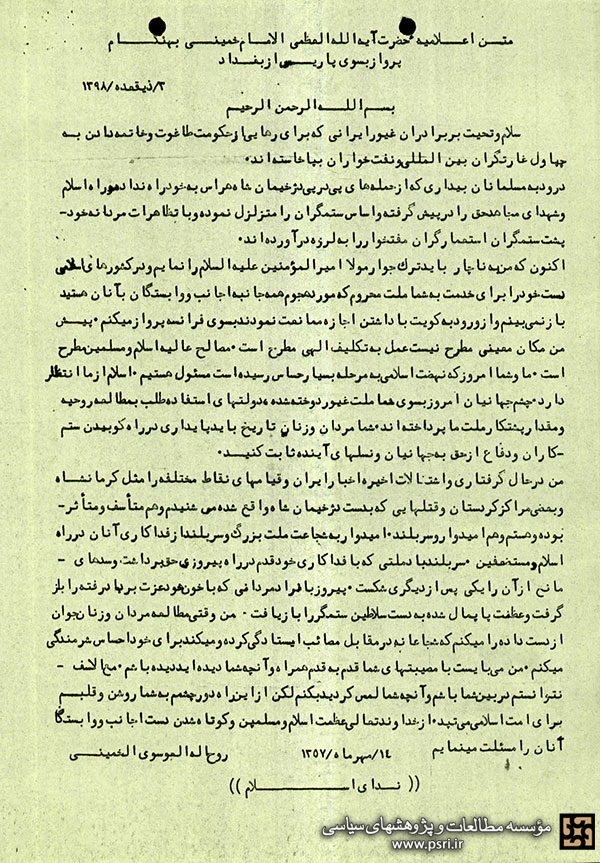 متن اعلامیه حضرت آیه الله العظمی الامام خمینی بهنگام
پرواز بسوی پاریس از بغداد
۳/ذیقعده/۱۳۹۸
بسم الله الرحمن الرحیم
سلام و تحیت بر برادران غیور ایرانی که برای رهایی از حکومت طاغوت و خاتمه دادن به
چپاول غارتگران بین المللی و نفت خواران بپا خاسته اند۰
درود به مسلمانان بیداری که از حمله های پی در پی دژخیمان شاه هراس به خود راه نداده و راه اسلام
و شهدای مجاهد حق را در پیش گرفته و اساس ستمگران را متزلزل نموده و با تظاهرات مردانه خود-
پشت ستمگران استعمارگران مفتخوار را به لرزه درآورده اند۰
اکنون که من به ناچار باید ترک جوار مولا امیرالمؤمنین علیه السلام را نمایم و در کشورهای اسلامی
دست خود را برای خدمت به شما ملت محروم که مورد هجوم همه جانبه اجانب و وابستگان بآنان هستید
باز نمی بینم و از ورود به کویت با داشتن اجازه ممانعت نمودند بسوی فرانسه پرواز میکنم۰ پیش
من مکان معینی مطرح نیست عمل به تکلیف الهی مطرح است۰ مصالح عالیه اسلام و مسلمین مطرح
است۰ ما و شما امروز که نهضت اسلامی به مرحله بسیار حساس رسیده است مسئول هستیم۰ اسلام از ما انتظار
دارد۰ چشم جهانیان امروز بسوی شما ملت غیور دوخته شده دولتهای استفاده طلب به مطالعه روحیه
و مقدار پشتکار ملت ما پرداخته اند۰ شما مردان و زنان تاریخ باید پایداری در راه کوبیدن ستم
-کاران و دفاع از حق به جهانیان و نسلهای آینده ثابت کنید۰
من در حال گرفتاری و اشتغالات اخیره اخبار ایران و قیامهای نقاط مختلفه را مثل کرمانشاه
و بعضی مراکز کردستان و قتلهایی که بدست دژخیمان شاه واقع شده می شنیدم و هم متأسف و متأثر-
بوده و هستم و هم امیدوار و سربلند۰ امیدوار به شجاعت ملت بزرگ و سربلند از فداکاری آنان در راه
اسلام و مستضعفین۰ سربلند باد ملتی که با فداکاری خود قدم در راه پیروزی حق برداشت و سدهای-
مانع از آن را یکی پس از دیگری شکست۰ پیروز باد مردمانی که با خون خود عزت بر باد رفته را باز
گرفت و عظمت پامال شده به دست سلاطین ستمگر را بازیافت- من وقتی مطالعه مردان و زنان جوان
از دست داده را میکنم که شجاعانه در مقابل مصائب ایستادگی کرده و میکند برای خود احساس شرمندگی
میکنم۰ من می بایست با مصیبتهای شما قدم به قدم همراه و آنچه شما دیده اید دیده باشم۰ مع الاسف-
نتوانستم در بین شما باشم و آنچه شما لمس کردید بکنم لکن از این راه دور چشم به شما روشن و قلبم
برای امت اسلامی می تپد۰ از خداوند تعالی عظمت اسلام و مسلمین و کوتاه شدن دست اجانب و وابستگان
آنان را مسئلت مینمایم
۱۴/مهرماه/۱۳۵۷ روح اله الموسوی الخمینی
(( ندای اسلام ))
مؤسسه مطالعات و پژوهشهای سیاسی
www.psri.ir